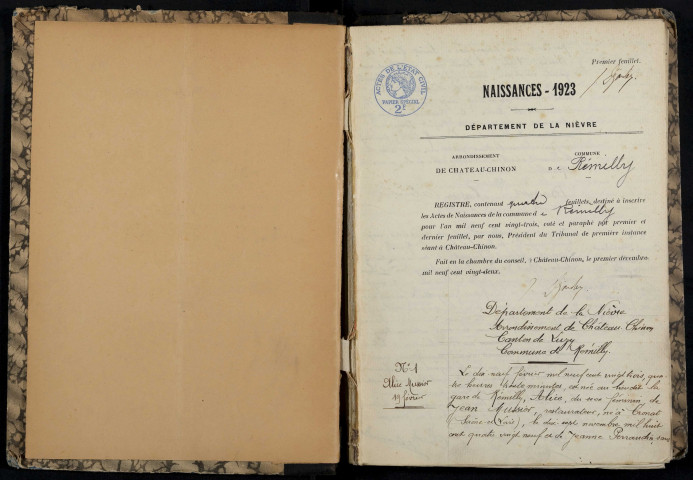 Premier feuillet.
ACTES DE L'ÉTAT CIVIL
PAPIER SPÉCIAL
2F
NAISSANCES - 1923
DÉPARTEMENT DE LA NIÈVRE
ARRONDISSEMENT
DE CHATEAU-CHINON
COMMUNE
D e Rémilly
REGISTRE, contenant quatre feuillets, destiné à inscrire
les Actes de Naissances de la commune d e Rémilly
pour l'an mil neuf cent vingt-trois, coté et paraphé par premier et
dernier feuillet, par nous, Président du Tribunal de première instance
séant à Château-Chinon.
Fait en la chambre du conseil, à Château-Chinon, le premier décembre
mil neuf cent vingt-deux.
Département de la Nièvre
Arrondissement de Château-Chinon
Canton de Luzy
Commune de Rémilly.
N° 1
Alice Mussier
19 février
Le dix neuf février mil neuf cent vingt trois, qua
tre heures trente minutes, est née au lieudit la
gare de Rémilly, Alice, du sexe féminin, de
Jean Mussier, restaurateur, né à Cronat
(Saône-et-Loire), le dix sept novembre mil huit
cent quatre vingt neuf et de Jeanne Perraudin, sans